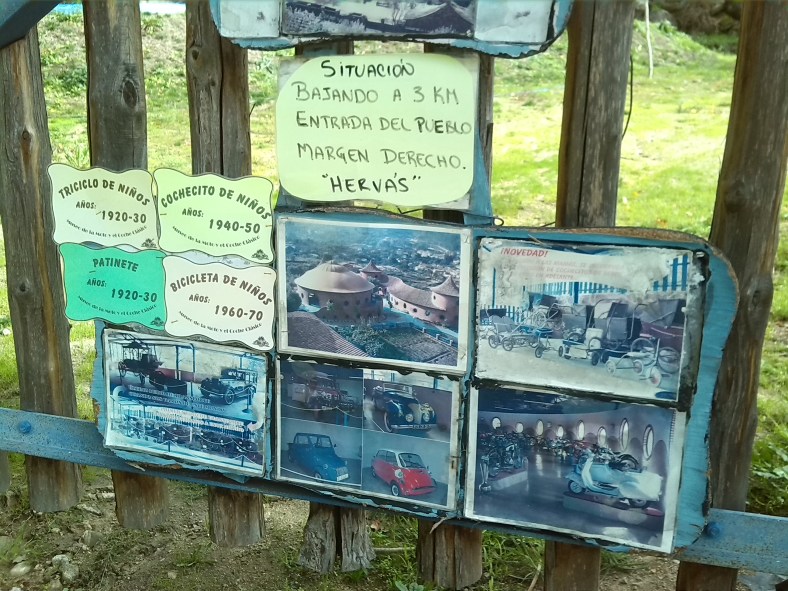 SITUACIÓN
BAJANDO A 3 KM
ENTRADA DEL PUEBLO
MARGEN DERECHO.
"HERVÁS"
TRICICLO DE NIÑOS
AÑOS:
1920-30
Museo de la Moto y el Coche Clásico
COCHECITO DE NIÑOS
AÑOS:
1940-50
Museo de la Moto y el Coche Clásico
PATINETE
AÑOS:
1920-30
Museo de la Moto y el Coche Clásico
BICICLETA DE NIÑOS
AÑOS:
1960-70
Museo de la Moto y el Coche Clásico
¡NOVEDAD!